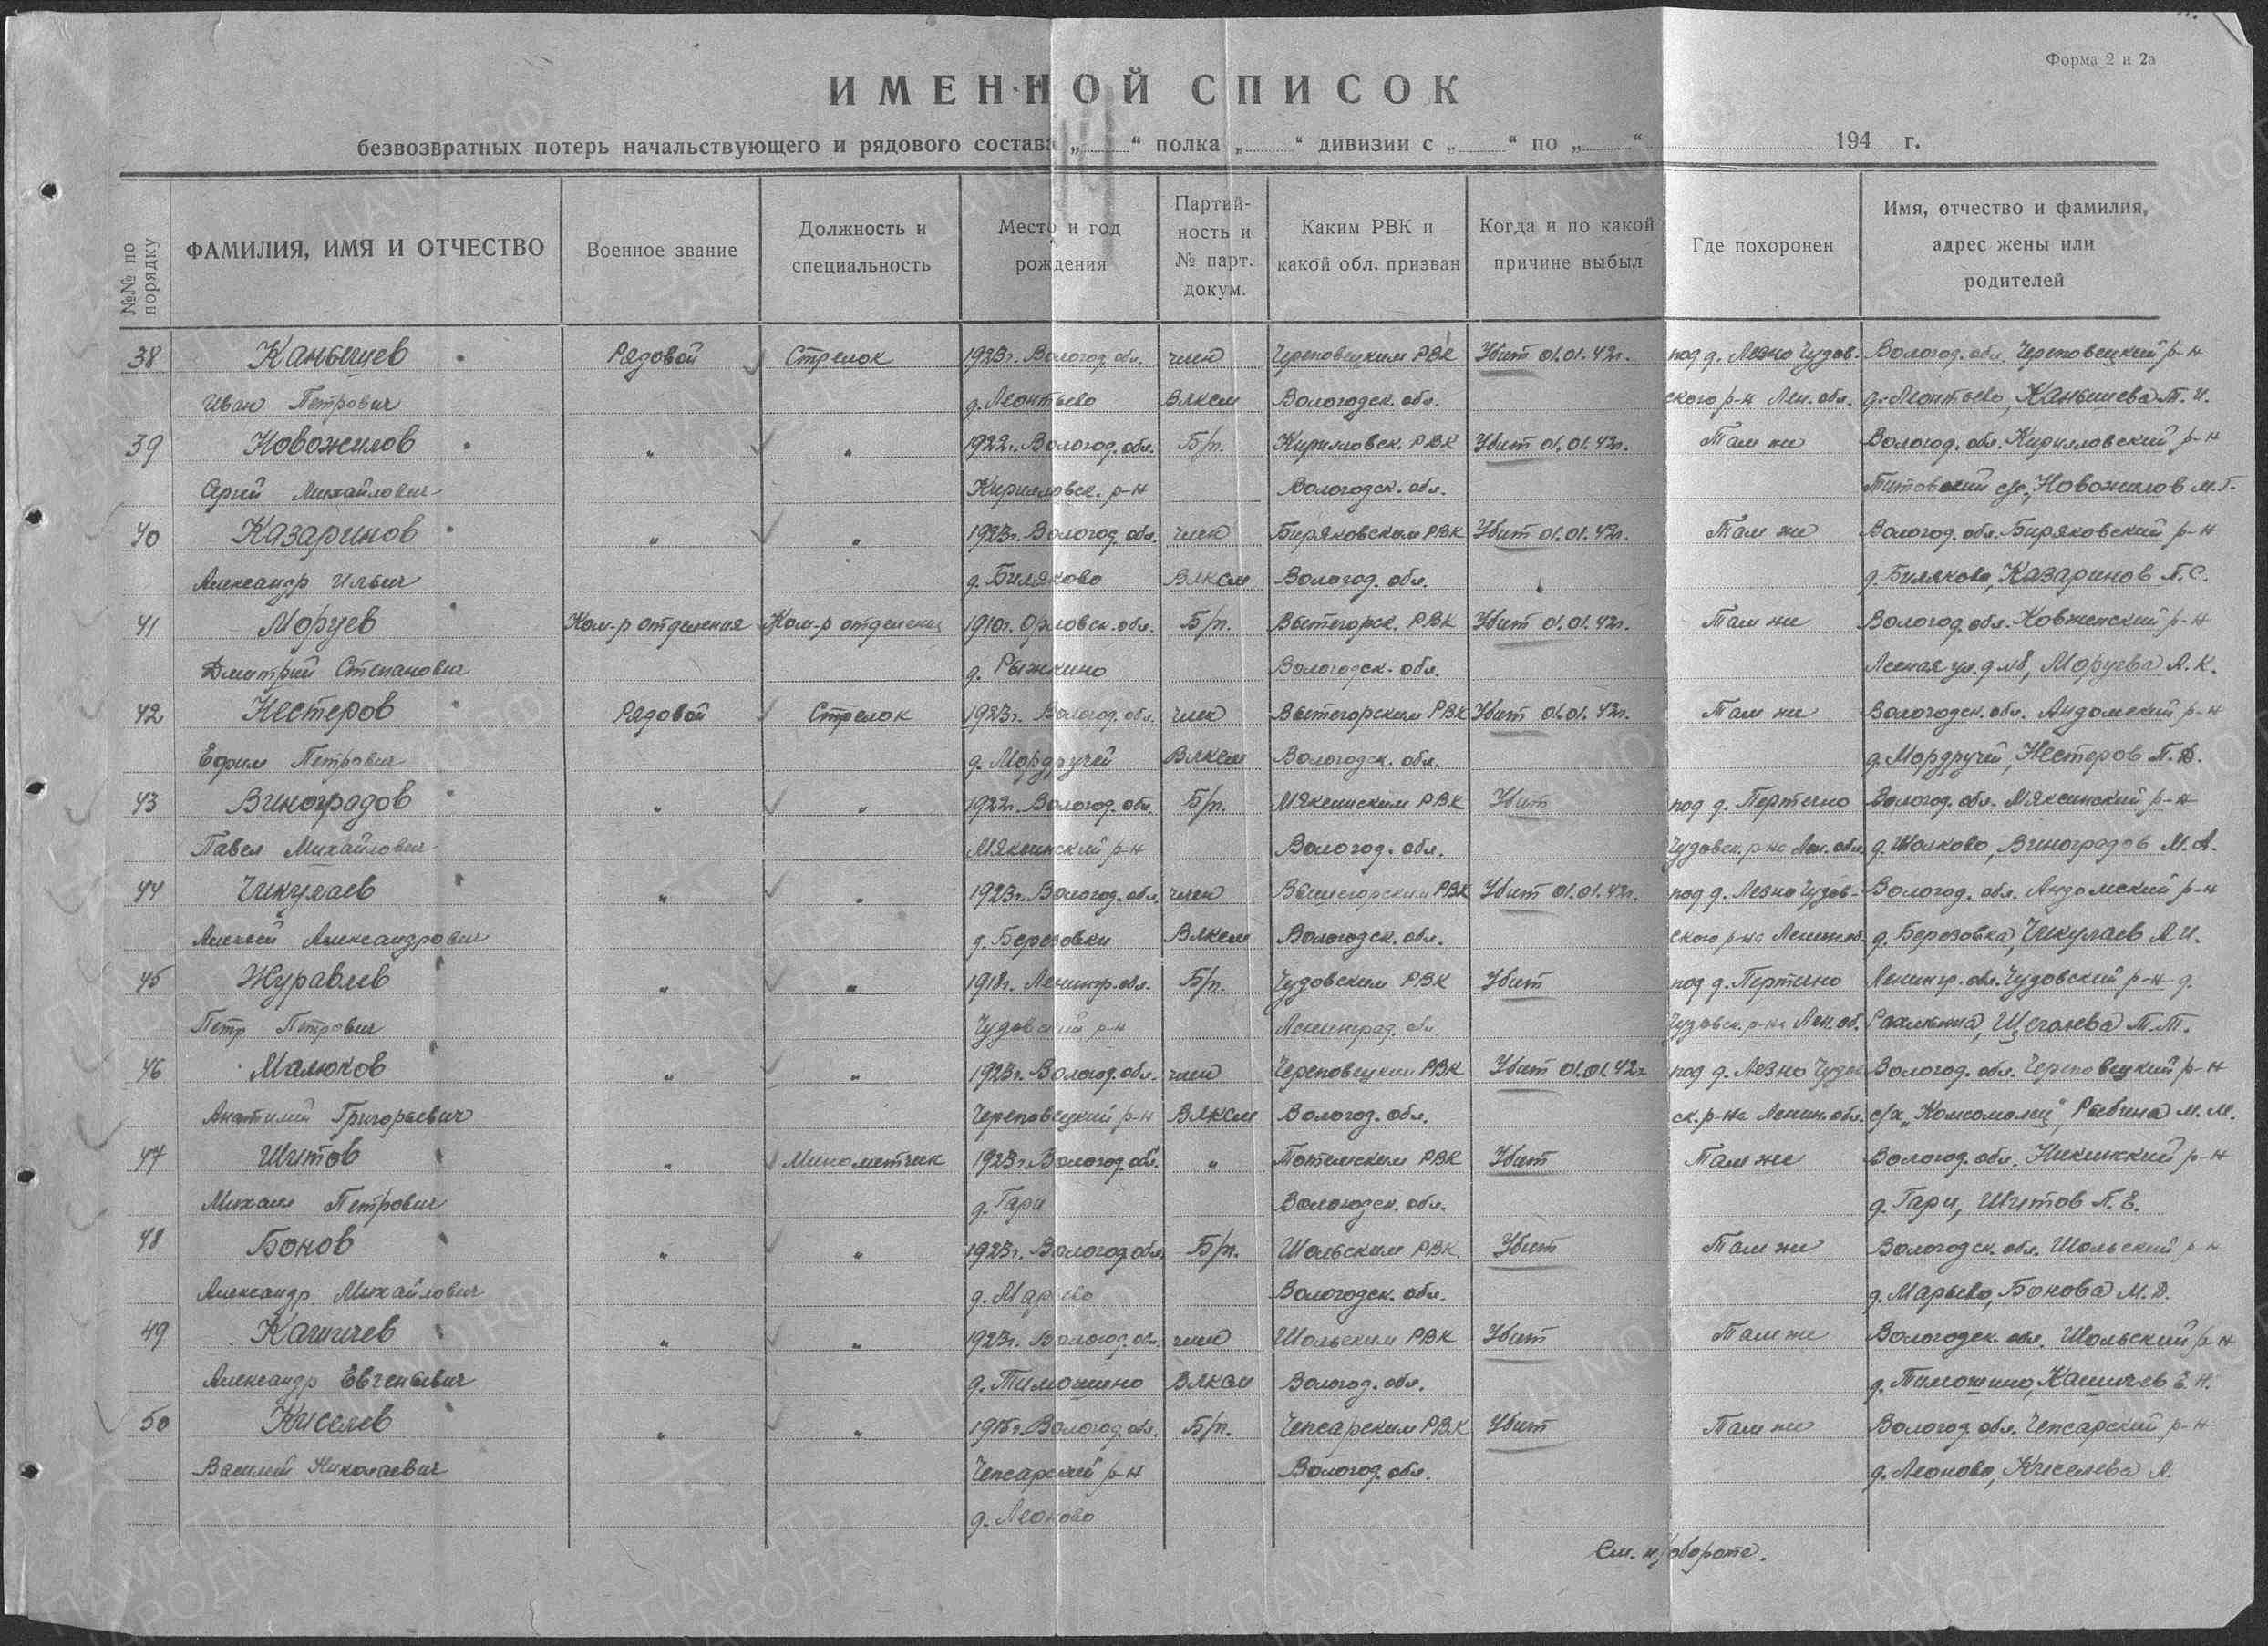 Форма 2 и 2а
ИМЕННОЙ СПИСОК
безвозвратных потерь начальствующего и рядового состава „ “ полка „ “ дивизии с „ “ по „ “ 194 г.
№№ по порядку
ФАМИЛИЯ, ИМЯ И ОТЧЕСТВО
Военное звание
Должность и
специальность
Место и год
рождения
Партий-
ность и
№ парт.
докум.
Каким РВК и
какой обл. призван
Когда и по какой
причине выбыл
Где похоронен
Имя, отчество и фамилия,
адрес жены или
родителей
38 Канышев Рядовой Стрелок 1923г. Вологод. обл. член Череповецким РВК Убит 01.01.42г. под д. Лезно Чудов- Вологод. обл. Череповецкий р-н
Иван Петрович д. Леонтьево ВЛКСМ Вологодск. обл. ского р-н Лен. обл. д. Леонтьево, Канышева Т. И.
39 Новожилов " " 1922г. Вологод. обл. Б/п. Кирилловск. РВК Убит 01.01.42г. Там же Вологод. обл. Кирилловский р-н
Михайлович Кирилловск. р-н Вологодск. обл. Титовский с/с, Новожилов М. Г.
40 Казаринов " " 1923г. Вологод. обл. член Биряковским РВК Убит 01.01.42г. Там же Вологод. обл. Биряковский р-н
Александр Ильич д. Биляково ВЛКСМ Вологод. обл. д. Биляково, Казаринов П. С.
41 Моруев Ком-р отделения Ком-р отделения 1910г. Орловск. обл. Б/п. Вытегорск. РВК Убит 01.01.42г. Там же Вологод. обл. Ковжинский р-н
Дмитрий Степанович д. Рыжкино Вологодск. обл. Лесная ул. Моруева А. К.
42 Нестеров Рядовой Стрелок 1923г. Вологод. обл. член Вытегорским РВК Убит 01.01.42г. Там же Вологодск. обл. Андомский р-н
Ефим Петрович д. Мордручей ВЛКСМ Вологодск. обл. д. Мордручей, Нестеров П. Д.
43 Виноградов " " 1922г. Вологод. обл. Б/п. Мяксинским РВК Убит под д. Пертечно Вологод. обл. Мяксинский р-н
Павел Михайлович Мяксинский р-н Вологод. обл. Чудовск. р-на Лен. обл. д. Виноградов М. А.
44 Чикулаев " " 1923г. Вологод. обл. член Вытегорским РВК Убит 01.01.42г. под д. Лезно Чудов- Вологод. обл. Андомский р-н
Алексей Александрович д. Березовки ВЛКСМ Вологодск. обл. ского р-на Ленин. об. д. Березовка, Чикулаев А. И.
45 Журавлев " " 1918г. Ленингр. обл. Б/п. Чудовским РВК Убит под д. Пертечно Ленингр. обл. Чудовский р-н д.
Петр Петрович Чудовский р-н Ленинград. обл. Чудовск. р-на Лен. об. Щеголева Т. Т.
46 Малюков " " 1923г. Вологод. обл. член Череповецким РВК Убит 01.01.42г. под д. Лезно Чудов Вологод. обл. Череповецкий р-н
Анатолий Григорьевич Череповецкий р-н ВЛКСМ Вологод. обл. ск. р-на Ленин. обл. с/х „Комсомолец“, М. М.
47 Шитов " Минометчик 1923г. Вологод. обл. " Тотемским РВК Убит Там же Вологод. обл. р-н
Михаил Петрович д. Гари Вологодск. обл. д. Гари, Шитов П. Е.
48 Бонов " " 1923г. Вологод. обл. Б/п. Шольским РВК Убит Там же Вологодск. обл. Шольский р-н
Александр Михайлович д. Марьево Вологодск. обл. д. Марьево, Бонова М. Д.
49 Кашичев " " 1923г. Вологод. обл. член Шольским РВК Убит Там же Вологодск. обл. Шольский р-н
Александр Евгеньевич д. Тимошино ВЛКСМ Вологод. обл. д. Тимошино, Кашичев Е. Н.
50 Киселев " " Вологод. обл. Б/п. Чепсарским РВК Убит Там же Вологод. обл. Чепсарский р-н
Василий Николаевич Чепсарский р-н Вологод. обл. д. Леоново, Киселева А.
д. Леоново
См. н/обороте.